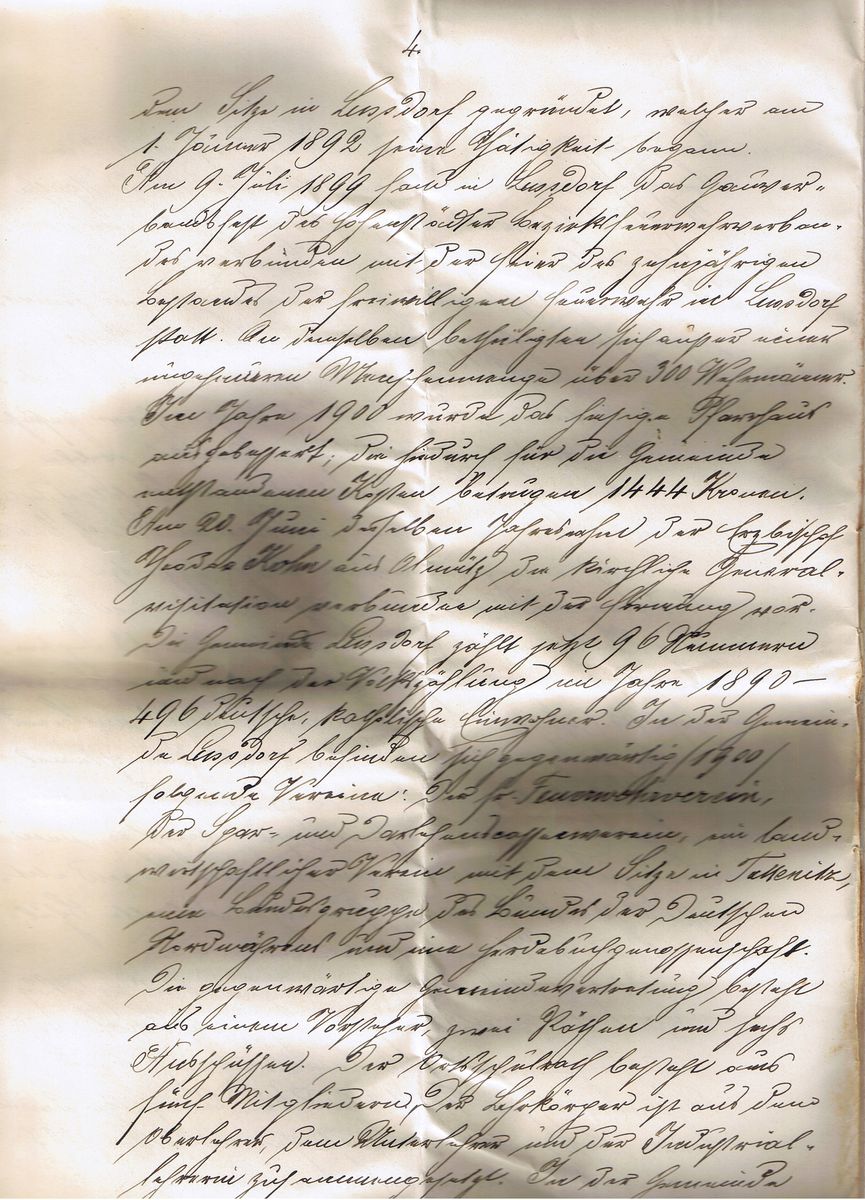 4.
dem Sitze in Lussdorf gegründet, welcher am
1. Jänner 1892 seine Thätigkeit begann.
Am 9. Juli 1899 fand in Lussdorf das Gauver-
bandsfest des Hohenstädter Bezirksfeuerwehrverban-
des verbunden mit der Feier des zehnjährigen
Bestandes der freiwilligen Feuerwehr in Lussdorf
statt. An demselben betheiligten sich außer einer
ungeheueren Menschenmenge über 300 Wehrmänner.
Im Jahre 1900 wurde das hiesige Pfarrhaus
ausgebessert; die hiedurch für die Gemeinde
entstandenen Kosten betrugen 1444 Kronen.
Am 20. Juni desselben Jahres nahm der Erzbischof
Theodor Kohn aus Olmütz die kirchliche General-
visitation verbunden mit der Firmung vor.
Die Gemeinde Lussdorf zählt jetzt 96 Nummern
und nach der Volkszählung im Jahre 1890 –
496 deutsche, katholische Einwohner. In der Gemein-
de Lussdorf befinden sich gegenwärtig /1900/
folgende Vereine: Der fr. Feuerwehrverein,
der Spar- und Darlehenscassenverein, ein land-
wirtschaftlicher Verein mit dem Sitze in Tattenitz,
eine Bundesgruppe des Bundes der Deutschen
Nordmährens und eine Herdebuchgenossenschaft.
Die gegenwärtige Gemeindevertretung besteht
aus einem Vorsteher, zwei Räthen und sechs
Ausschüssen. Der Ortsschulrath besteht aus
fünf Mitgliedern. Der Lehrkörper ist aus dem
Oberlehrer, dem Unterlehrer und der Industrial-
lehrerin zusammengesetzt. In der Gemeinde